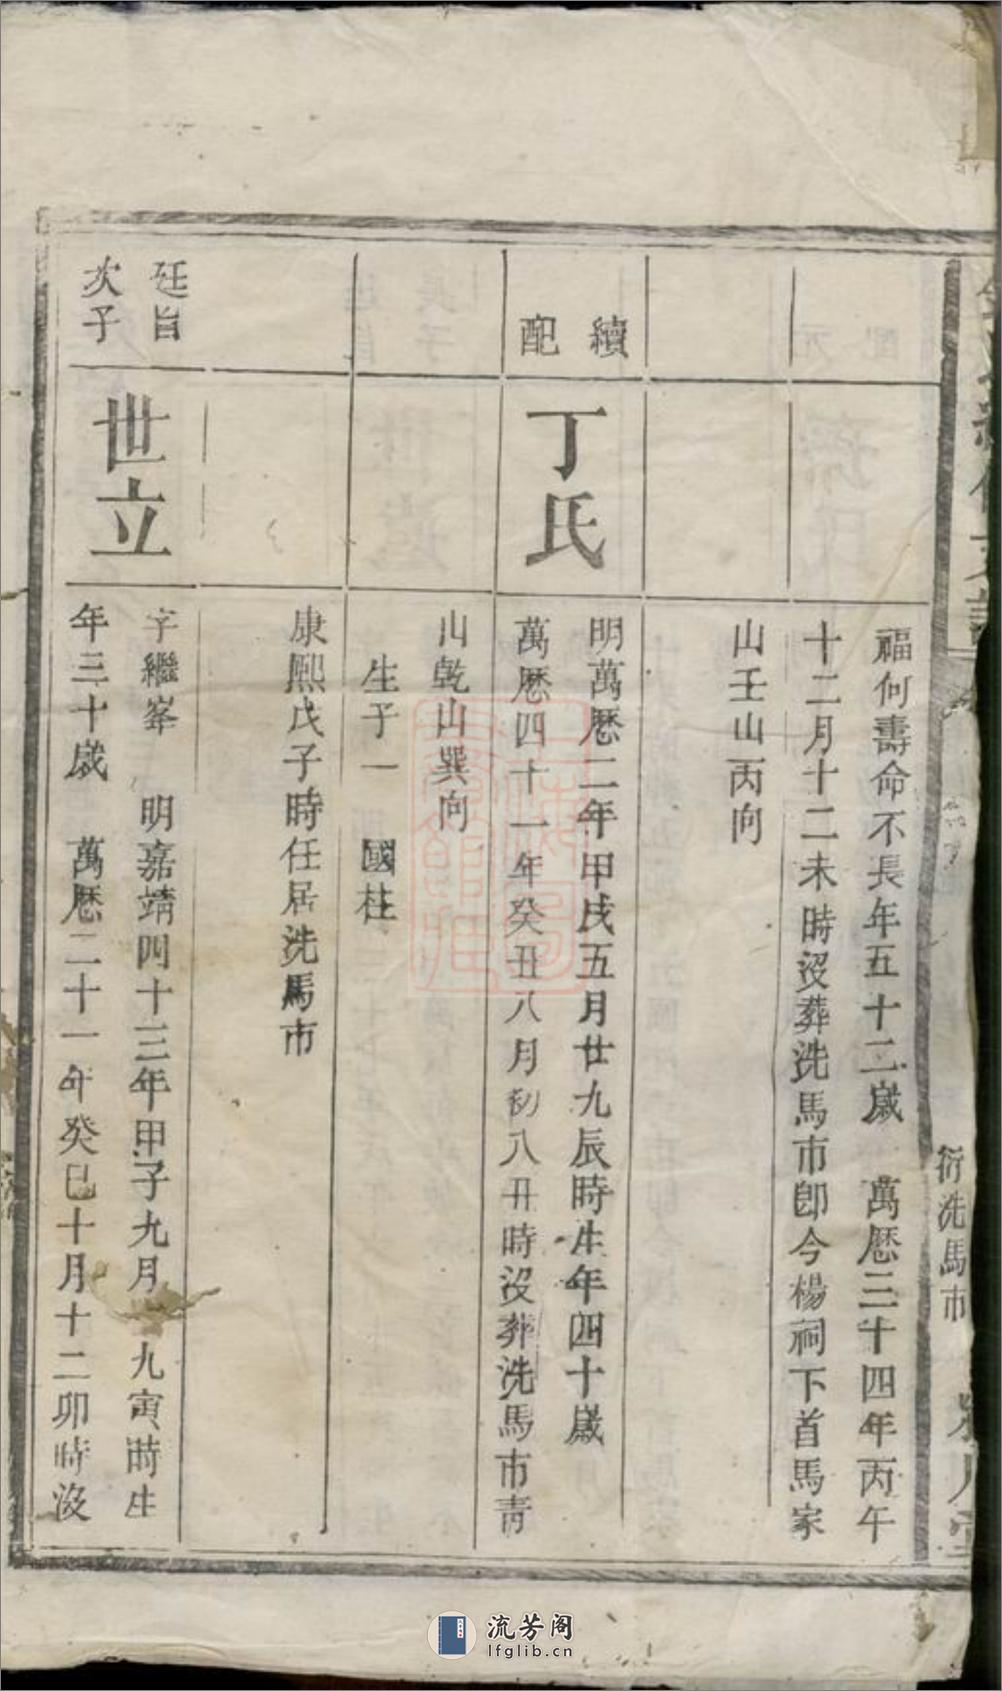 衍洗馬市
福何壽命不長年五十二歲　萬厯三十四年丙午
十二月十二未時沒葬洗馬市卽今楊祠下首馬家
山壬山丙向
續配
丁氏
明萬厯二年甲戌五月廿九辰時生年四十歲
萬厯四十一年癸丑八月初八丑時沒葬洗馬市靑
山乾山巽向
生子一　國柱
康熙戊子時任居洗馬市
廷旨
次子
世立
字繼峯　明嘉靖四十三年甲子九月　九寅時生
年三十歲　萬厯二十一年癸巳十月十二卯時沒
流芳阁
lfglib.cn